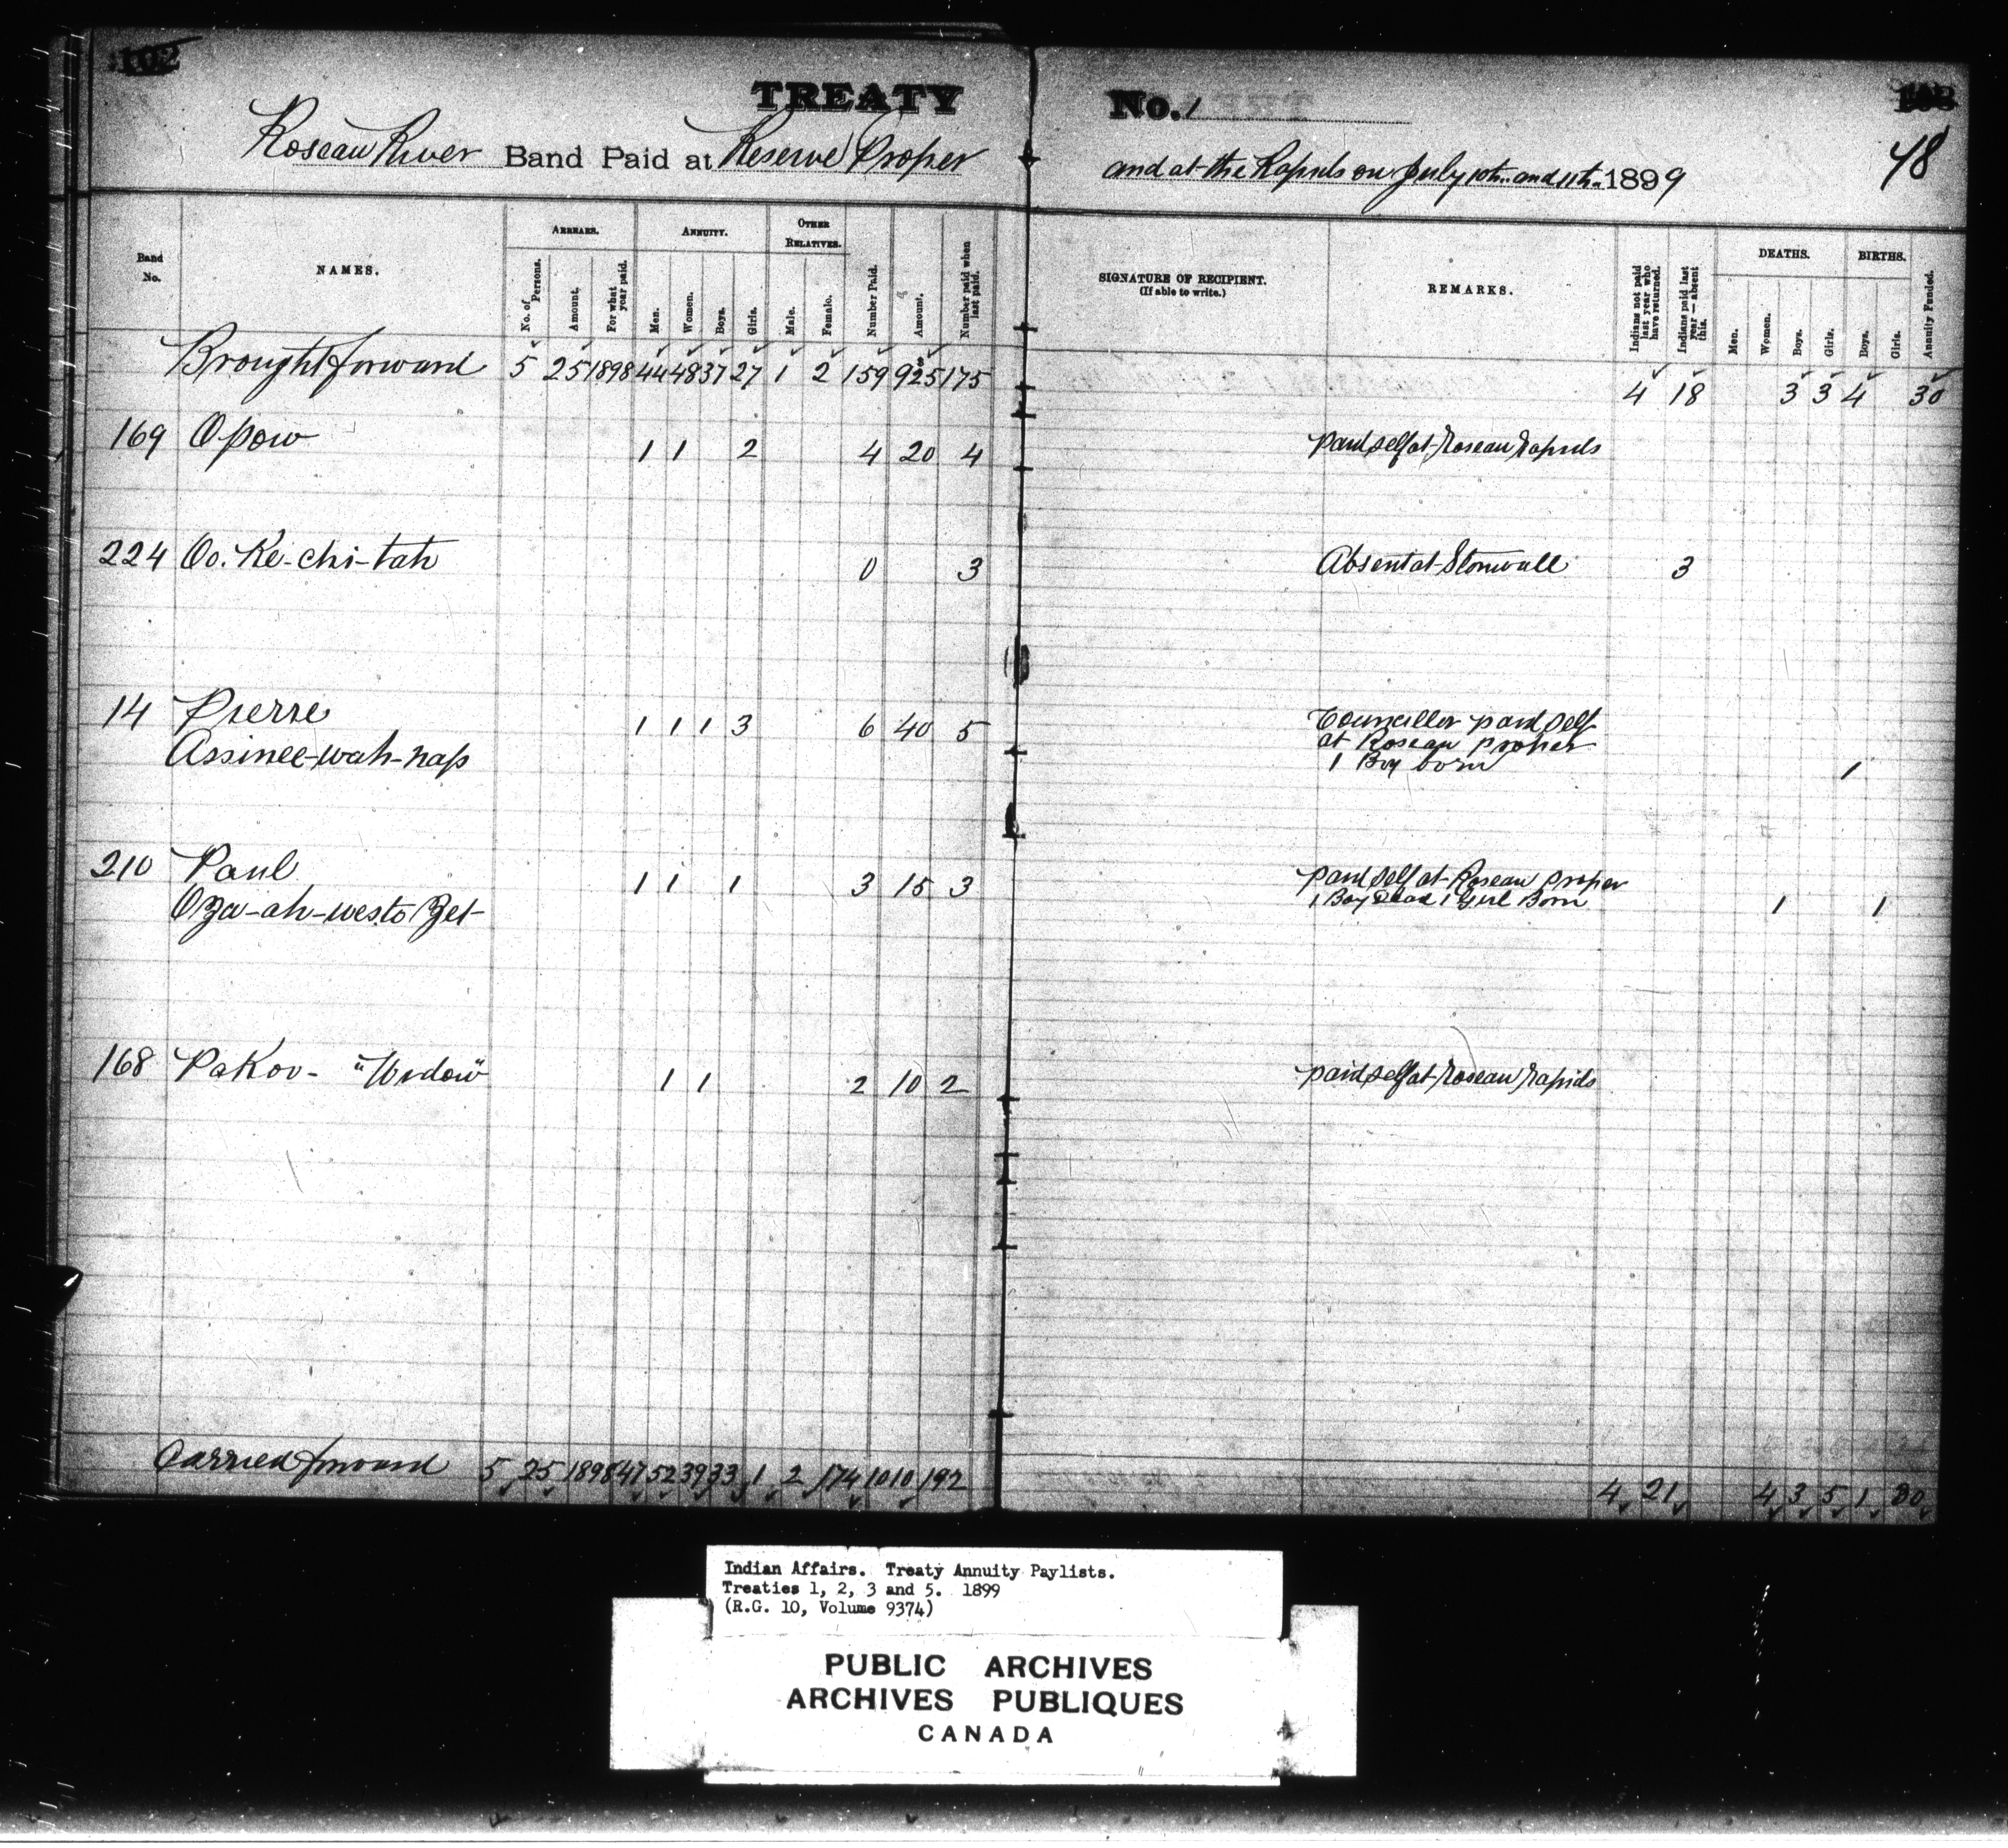 102
TREATY No. 1
48
Roseau River Band Paid at Reserve Proper and at the Rapids on July 10th. and 11th. 1899
Band No.
NAMES.
ARREARS.
No. of Persons.
Amount.
For what year paid.
ANNUITY.
Men.
Women.
Boys.
Girls.
OTHER RELATIVES.
Male.
Female.
Number Paid.
Amount.
Number paid when last paid.
SIGNATURE OF RECIPIENT.
(If able to write.)
REMARKS.
Indians not paid last year who have returned.
Indians paid last year—absent this.
DEATHS.
Men.
Women.
Boys.
Girls.
BIRTHS.
Boys.
Girls.
Annuity Funded.
Brought forward 5 25 1898 44 48 37 27 1 2 159 925 175 4 18 3 3 4 30
169 Opow 1 1 2 4 20 4 paid self at Roseau Rapids
224 Oo-Ke-chi-tah 0 3 Absent at Stonwall 3
14 Pierre 1 1 1 3 6 40 5 Councillor paid self
Assinee-wah-nap at Roseau proper
1 Boy born 1
210 Paul 1 1 1 3 15 3 paid self at Roseau proper
Oza-ah-westo Zet- 1 Boy Dead 1 Girl Born 1 1
168 PaKoo- "Widow" 1 1 2 10 2 paid self at Roseau Rapids
Carried forward 5 25 1898 47 52 39 33 1 2 174 1010 192 4 21 4 3 5 1 30
Indian Affairs. Treaty Annuity Paylists.
Treaties 1, 2, 3 and 5. 1899
(R.G. 10, Volume 9374)
PUBLIC ARCHIVES
ARCHIVES PUBLIQUES
CANADA